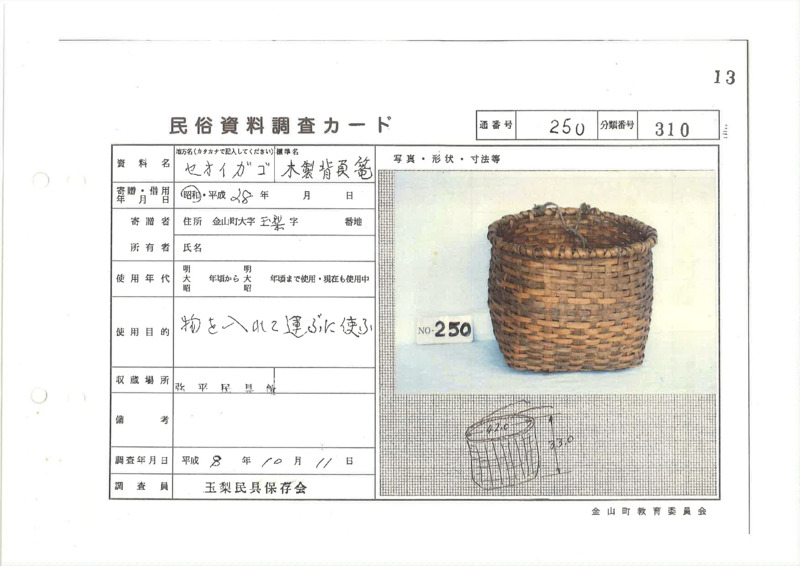 13
民俗資料調査カード
通番号 250 分類番号 310
資料名 地方名(カタカナで記入してください) セオイカゴ 標準名 木製背負篭
写真・形状・寸法等
寄贈・借用年月日 昭和・平成 28 年 月 日
寄贈者 住所 金山町大字 玉梨 字 番地
所有者 氏名
使用年代 明大昭 年頃から 明大昭 年頃まで使用・現在も使用中
使用目的 物を入れて運ぶに使ふ
NO-250
収蔵場所 民具館
備考
42.0
33.0
調査年月日 平成 8 年 10 月 11 日
調査員 玉梨民具保存会
金山町教育委員会